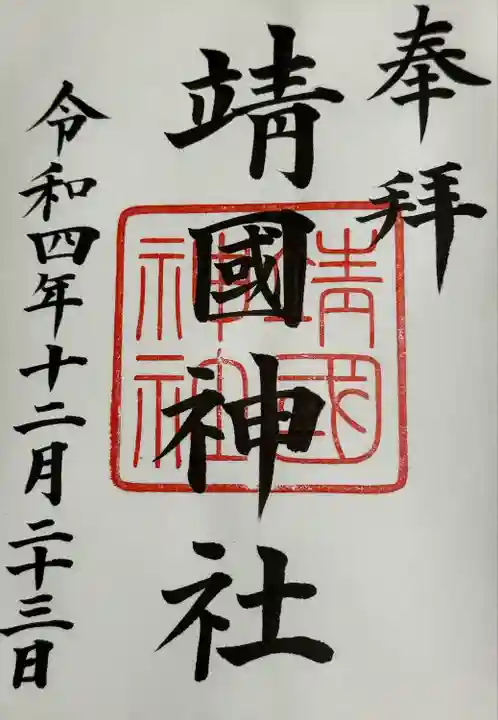 奉拝
靖國神社
靖國神社
令和四年十二月二十三日